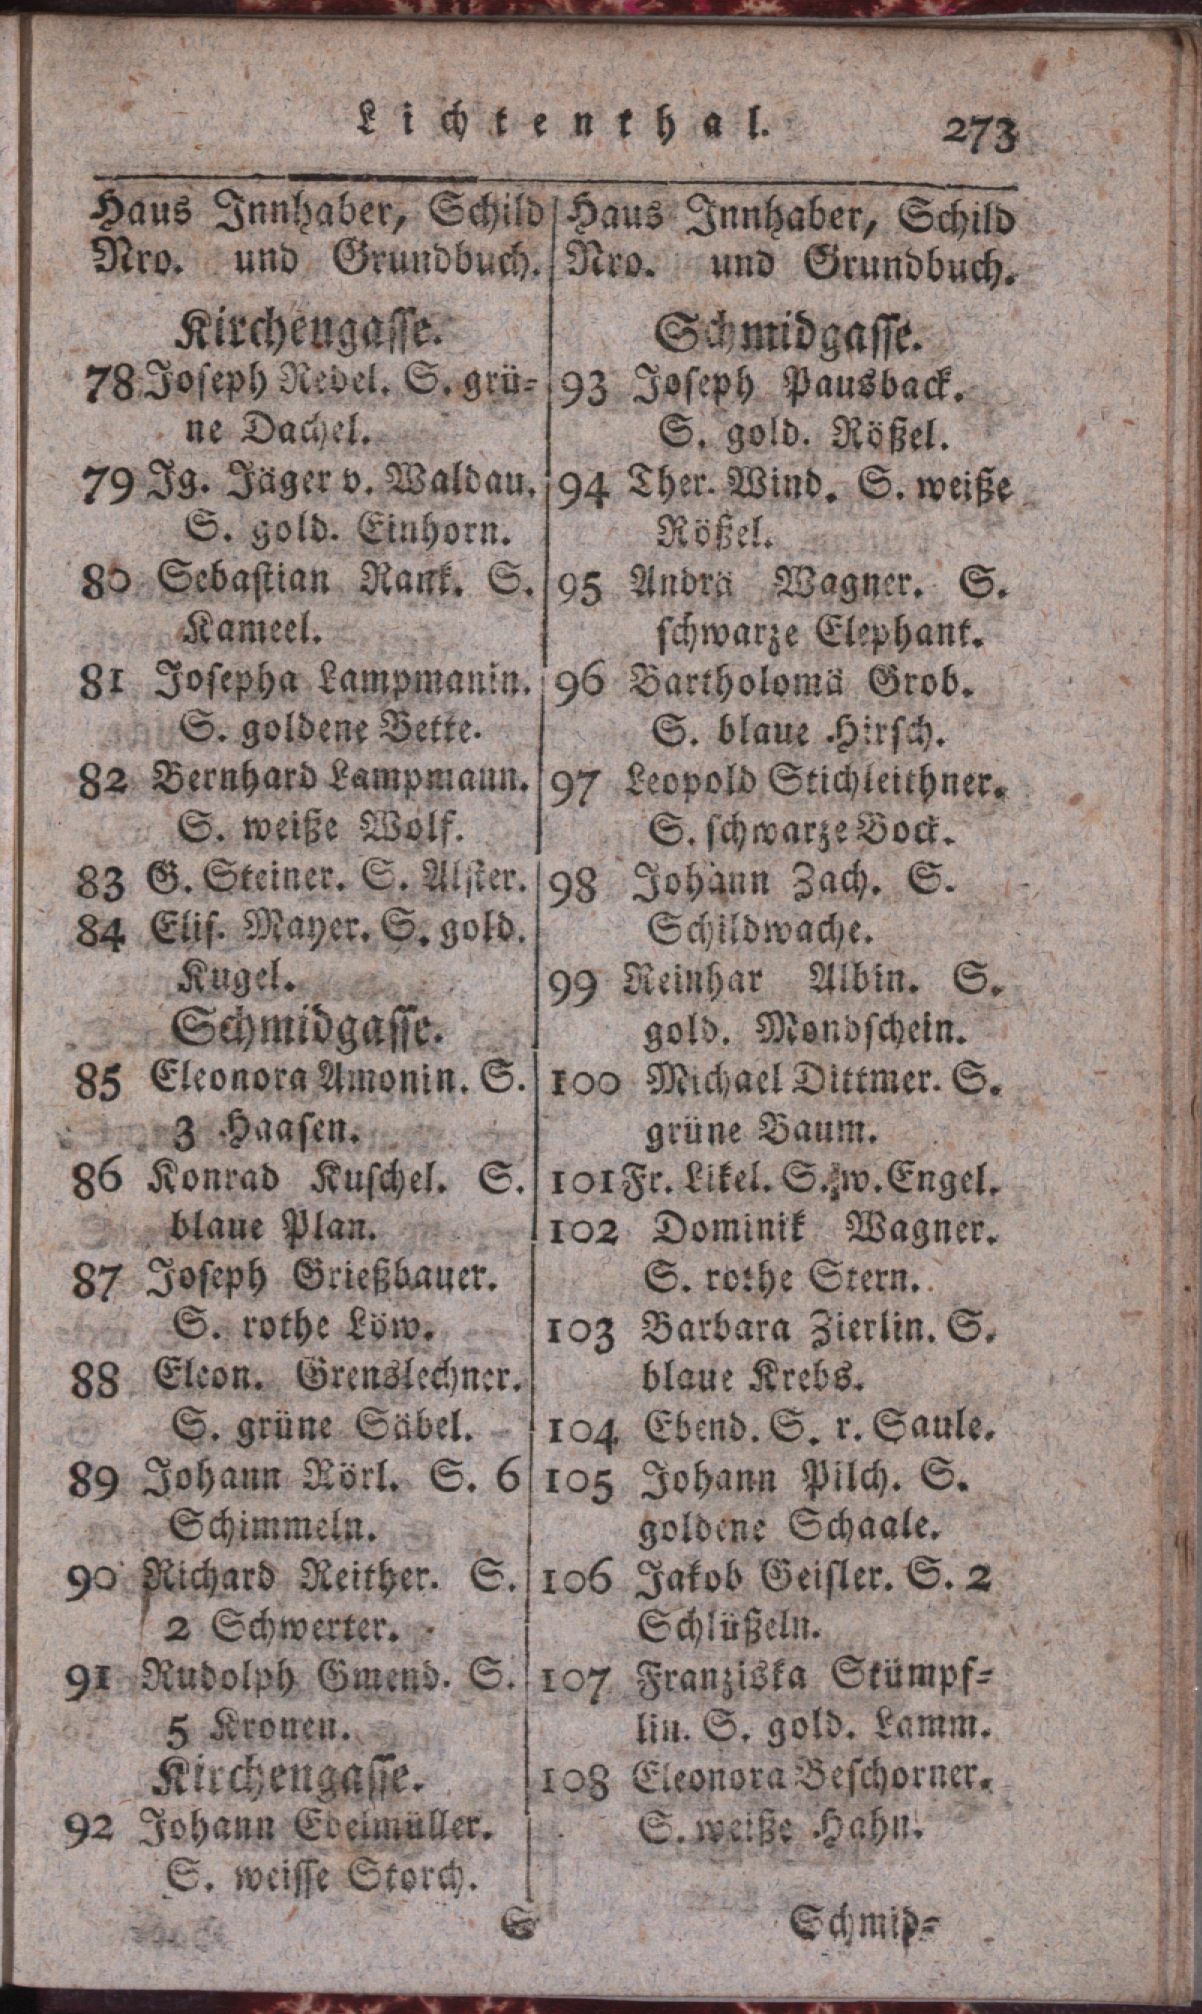 Lichtenthal. 273
Haus Innhaber, Schild
Nro. und Grundbuch.
Kirchengasse.
78 Joseph Redel. S. grü-
ne Dachel.
79 Ig. Jäger v. Waldau.
S. gold. Einhorn.
80 Sebastian Rank. S.
Kameel.
81 Josepha Lampmanin.
S. goldene Bette.
82 Bernhard Lampmann.
S. weiße Wolf.
83 G. Steiner. S. Alster.
84 Elis. Mayer. S. gold.
Kugel.
Schmidgasse.
85 Eleonora Amonin. S.
3 Haasen.
86 Konrad Kuschel. S.
blaue Plan.
87 Joseph Grießbauer.
S. rothe Löw.
88 Eleon. Grenslechner.
S. grüne Säbel.
89 Johann Rörl. S. 6
Schimmeln.
90 Richard Reither. S.
2 Schwerter.
91 Rudolph Gmend. S.
5 Kronen.
Kirchengasse.
92 Johann Edelmüller.
S. weisse Storch.
Haus Innhaber, Schild
Nro. und Grundbuch.
Schmidgasse.
93 Joseph Pausback.
S. gold. Rößel.
94 Ther. Wind. S. weiße
Rößel.
95 Andrä Wagner. S.
schwarze Elephant.
96 Bartholomä Grob.
S. blaue Hirsch.
97 Leopold Stichleithner.
S. schwarze Bock.
98 Johann Zach. S.
Schildwache.
99 Reinhar Albin. S.
gold. Mondschein.
100 Michael Dittmer. S.
grüne Baum.
101 Fr. Likel. S. w. Engel.
102 Dominik Wagner.
S. rothe Stern.
103 Barbara Zierlin. S.
blaue Krebs.
104 Ebend. S. r. Saule.
105 Johann Pilch. S.
goldene Schaale.
106 Jakob Geisler. S. 2
Schlüßeln.
107 Franziska Stümpf-
lin. S. gold. Lamm.
108 Eleonora Beschorner.
S. weiße Hahn.
S Schmid-